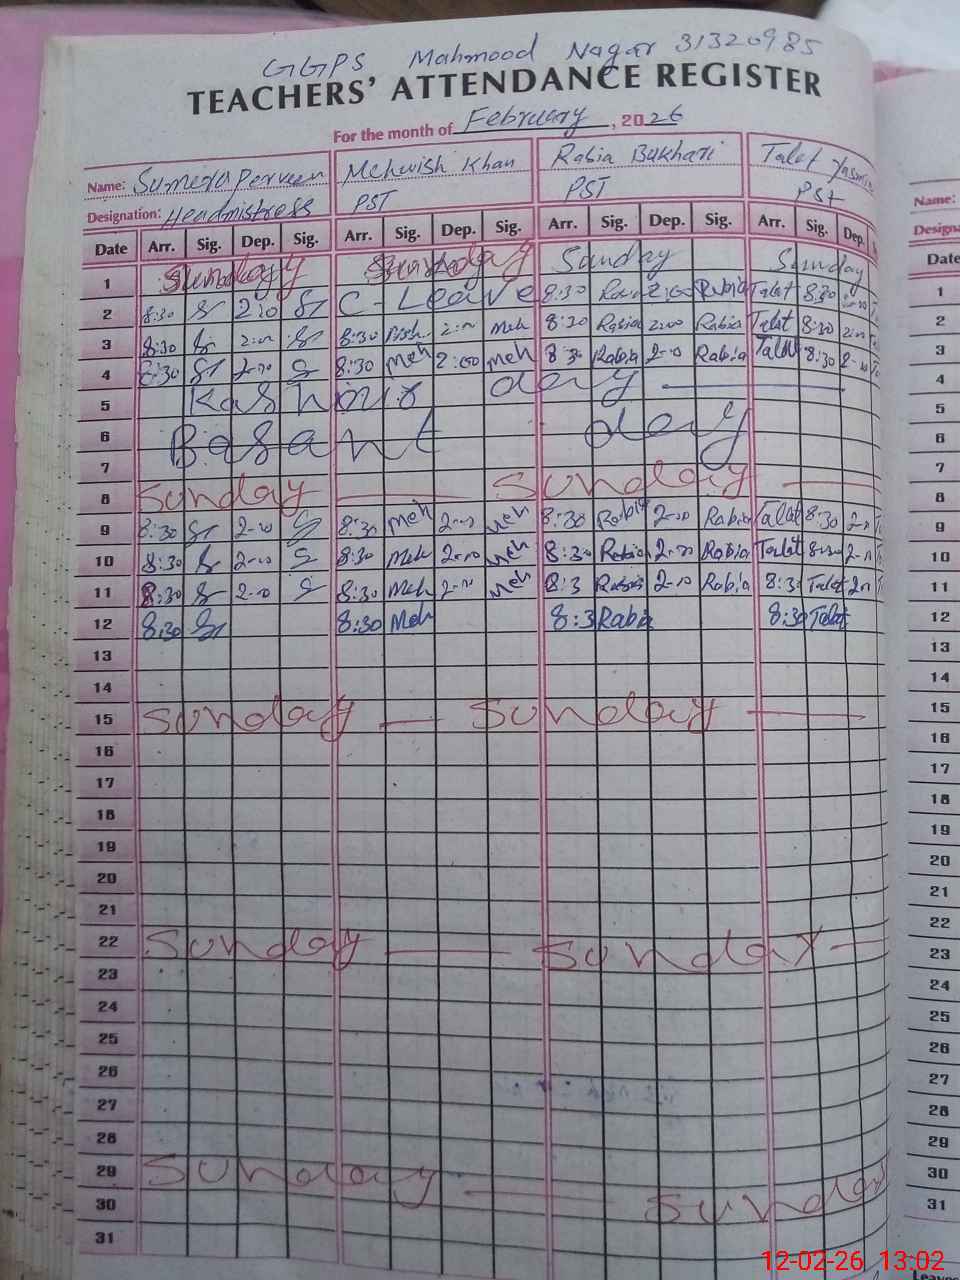 GGPS Mahmood Nagar 31320985
TEACHERS' ATTENDANCE REGISTER
For the month of February, 2026
Name: Sumera Perveen Mehwish Khan Rabia Bukhari Talat Yasmin
Designation: Headmistress PST PST PST
Date Arr. Sig. Dep. Sig. Arr. Sig. Dep. Sig. Arr. Sig. Dep. Sig. Arr. Sig. Dep.
1 Sunday Sunday Sunday Sunday
2 8:30 2:00 C-Leave 8:30 Rabia 2:00 Rabia Talat 8:30
3 8:30 2:00 8:30 2:00 Meh 8:30 Rabia 2:00 Rabia Talat 8:30 2:00
4 8:30 2:00 8:30 Meh 2:00 Meh 8:30 Rabia 2:00 Rabia Talat 8:30 2:00
5 Kashmir day
6 Basant day
7
8 Sunday Sunday
9 8:30 2:00 8:30 Meh 2:00 Meh 8:30 Rabia 2:00 Rabia Talat 8:30 2:00
10 8:30 2:00 8:30 Meh 2:00 Meh 8:30 Rabia 2:00 Rabia Talat 8:30 2:00
11 8:30 2:00 8:30 Meh 2:00 Meh 8:3 Rabia 2:00 Rabia 8:3 Talat 2:00
12 8:30 8:30 Meh 8:3 Rabia 8:30 Talat
13
14
15 Sunday Sunday
16
17
18
19
20
21
22 Sunday Sunday
23
24
25
26
27
28
29 Sunday Sunday
30
31
Name:
Date
1
2
3
4
5
6
7
8
9
10
11
12
13
14
15
16
17
18
19
20
21
22
23
24
25
26
27
28
29
30
31
12-02-26 13:02